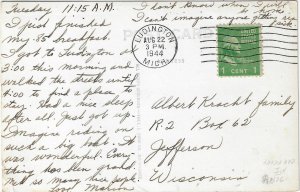 Tuesday 11:15 A.M.
I just finished
my .85 breakfast.
I got to Ludington
3:30 this morning and
walked the streets until
6:00 to find a place to
stay. Had a nice sleep
after all. Just got up.
Imagine riding on
such a big boat. It
was wonderful. Every-
thing has been grand
so many nice people.
Love Marion
I don't know when I will
I can't imagine anyone getting
POST CARD
LUDINGTON
AUG 22
3 PM
1944
MICH.
1 CENT 1
Albert Kracht family
R-2 Box 62
Jefferson
Wisconsin